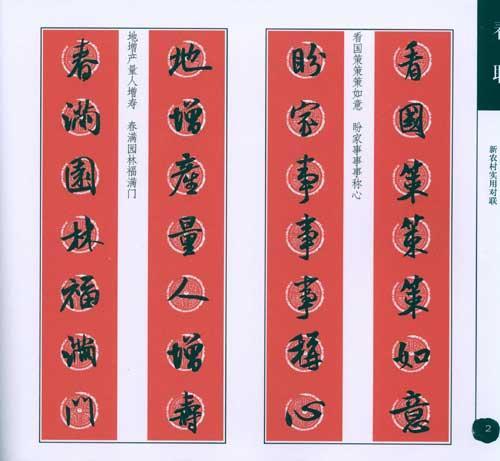 新农村实用对联
2
看國策策策如意
看国策策策如意 盼家事事事称心
盼家事事事稱心
地增產量人增壽
地增产量人增寿 春满园林福满门
春滿園林福滿門